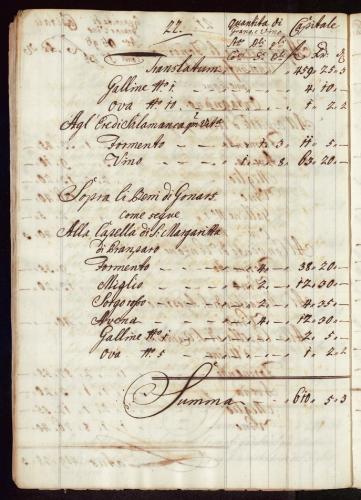 22. Quantità di Capitale
Grano, e Vino
Translatum - - 459. 25. 3
Galline N.º 1. - - - 4. 10. -
Ova N.º 10. - - - 1. 2. 2
Agl' Eredi Salamanca
Formento - - 1. 3 11. 5. -
Vino - - - 1. . 8. 63. 20. -
Sopra li Beni di Gonars
come segue
Alla Capella di S. Margaritta
di
Formento - - - 4. - 38. 20. -
Miglio - - - 2. - 12. 30. -
Sorgo - - - 2. - 4. 35. -
Avena - - - 4. - 12. 30. -
Galline N.º 1 - - - 2. 5. -
Ova N.º 5 - - - 1. 2. 2
Summa - - 610. 5. 3